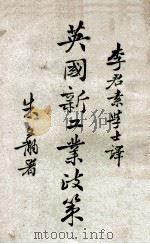 李君素學士譯
英國新工業政策
朱文黼署